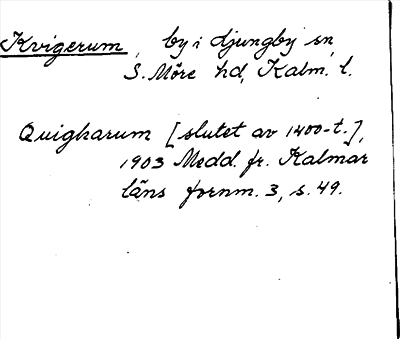 Kvigerum, by i Ljungby sn,
S. Möre hd, Kalm. l.
Quigkarum [slutet av 1400-t.],
1903 Medd. fr. Kalmar
läns fornm. 3, s. 49.